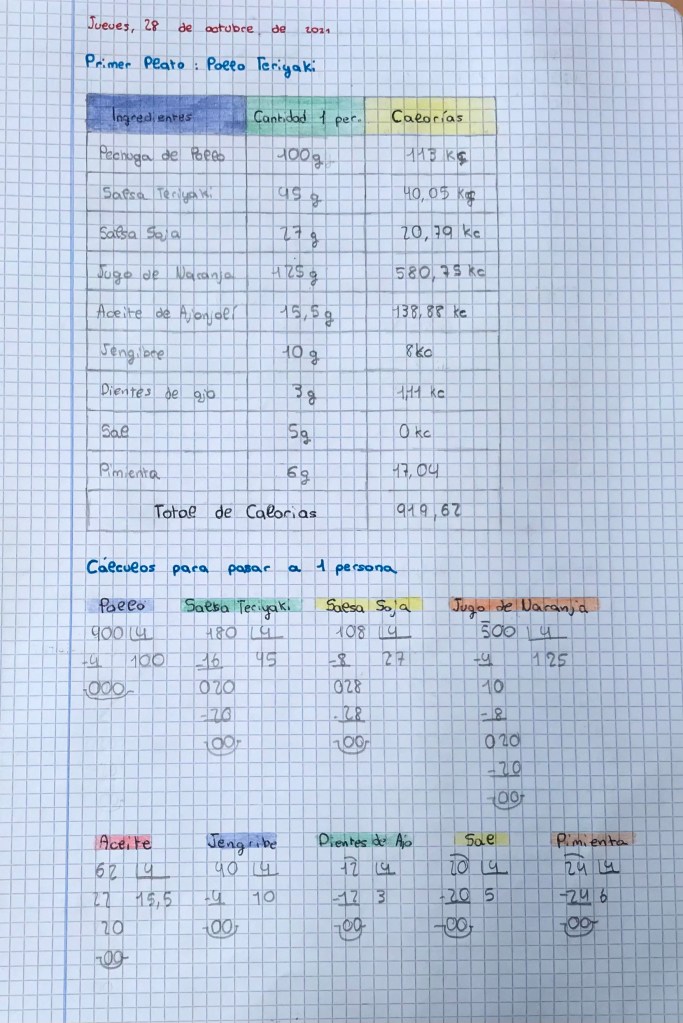 Jueves, 28 de octubre de 2021
Primer Plato : Pollo Teriyaki
Ingredientes Cantidad 1 per. Calorías
Pechuga de Pollo 100g 113 kc
Salsa Teriyaki 45 g 40,05 kc
Salsa Soja 27 g 20,79 kc
Jugo de Naranja 125g 580,75 kc
Aceite de Ajonjolí 15,5g 138,88 kc
Jengibre 10 g 8kc
Dientes de ajo 3g 1,11 kc
Sal 5g 0 kc
Pimienta 6g 17,04
Total de Calorias 919,62
Cálculos para pasar a 1 persona
Pollo Salsa Teriyaki Salsa Soja Jugo de Naranja
400 4 180 4 108 4 500 4
-4 100 -16 45 -8 27 -4 125
000 020 028 10
-20 -28 -8
00 00 020
-20
00
Aceite Jengribe Dientes de Ajo Sal Pimienta
62 4 40 4 12 4 20 4 24 4
22 15,5 -4 10 -12 3 -20 5 -24 6
20 00 00 00 00
00